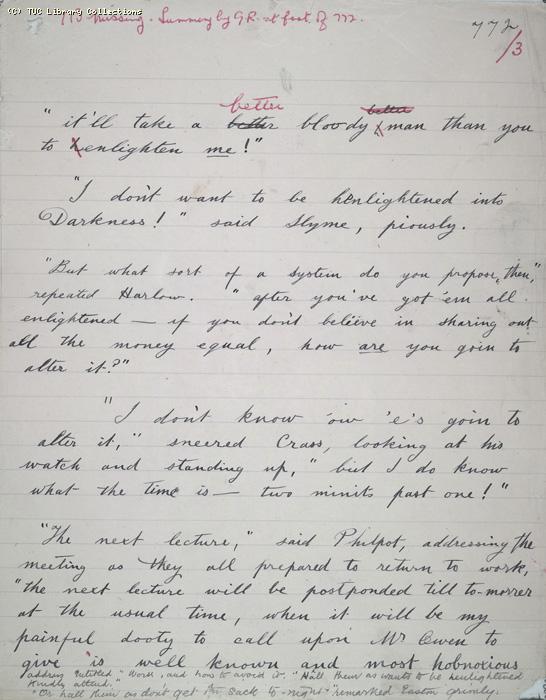 (C) TUC Library Collections
773 missing. Summary by G.R. at foot of 772.
772/3
better better
"it'll take a better bloody man than you
to henlighten me!"
"I don't want to be henlightened into
Darkness!" said Slyme, piously.
"But what sort of a system do you propose, then,"
repeated Harlow. "after you've got 'em all
enlightened — if you don't believe in sharing out
all the money equal, how are you goin to
alter it?"
"I don't know 'ow 'e's goin to
alter it," sneered Crass, looking at his
watch and standing up, "but I do know
what the time is — two minits past one!"
"The next lecture," said Philpot, addressing the
meeting as they all prepared to return to work,
"the next lecture will be postponded till to-morrer
at the usual time, when it will be my
painful dooty to call upon Mr Owen to
give is well known and most hobnoxious
address entitled "Work, and how to avoid it." Hall them as wants to be henlightened
kindly attend."
"Or hall them as dont get the sack to-night" remarked Easton grimly.